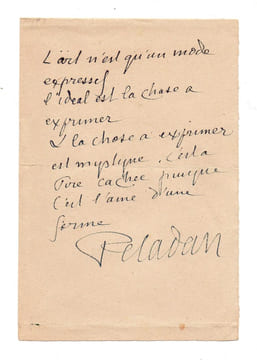 L'art n'est qu'un mode
expressif
l'ideal est la chose a
exprimer
& la chose a exprimer
est mystique. c'est la
cachee puisque
C'est l'ame d'une
forme
Peladan